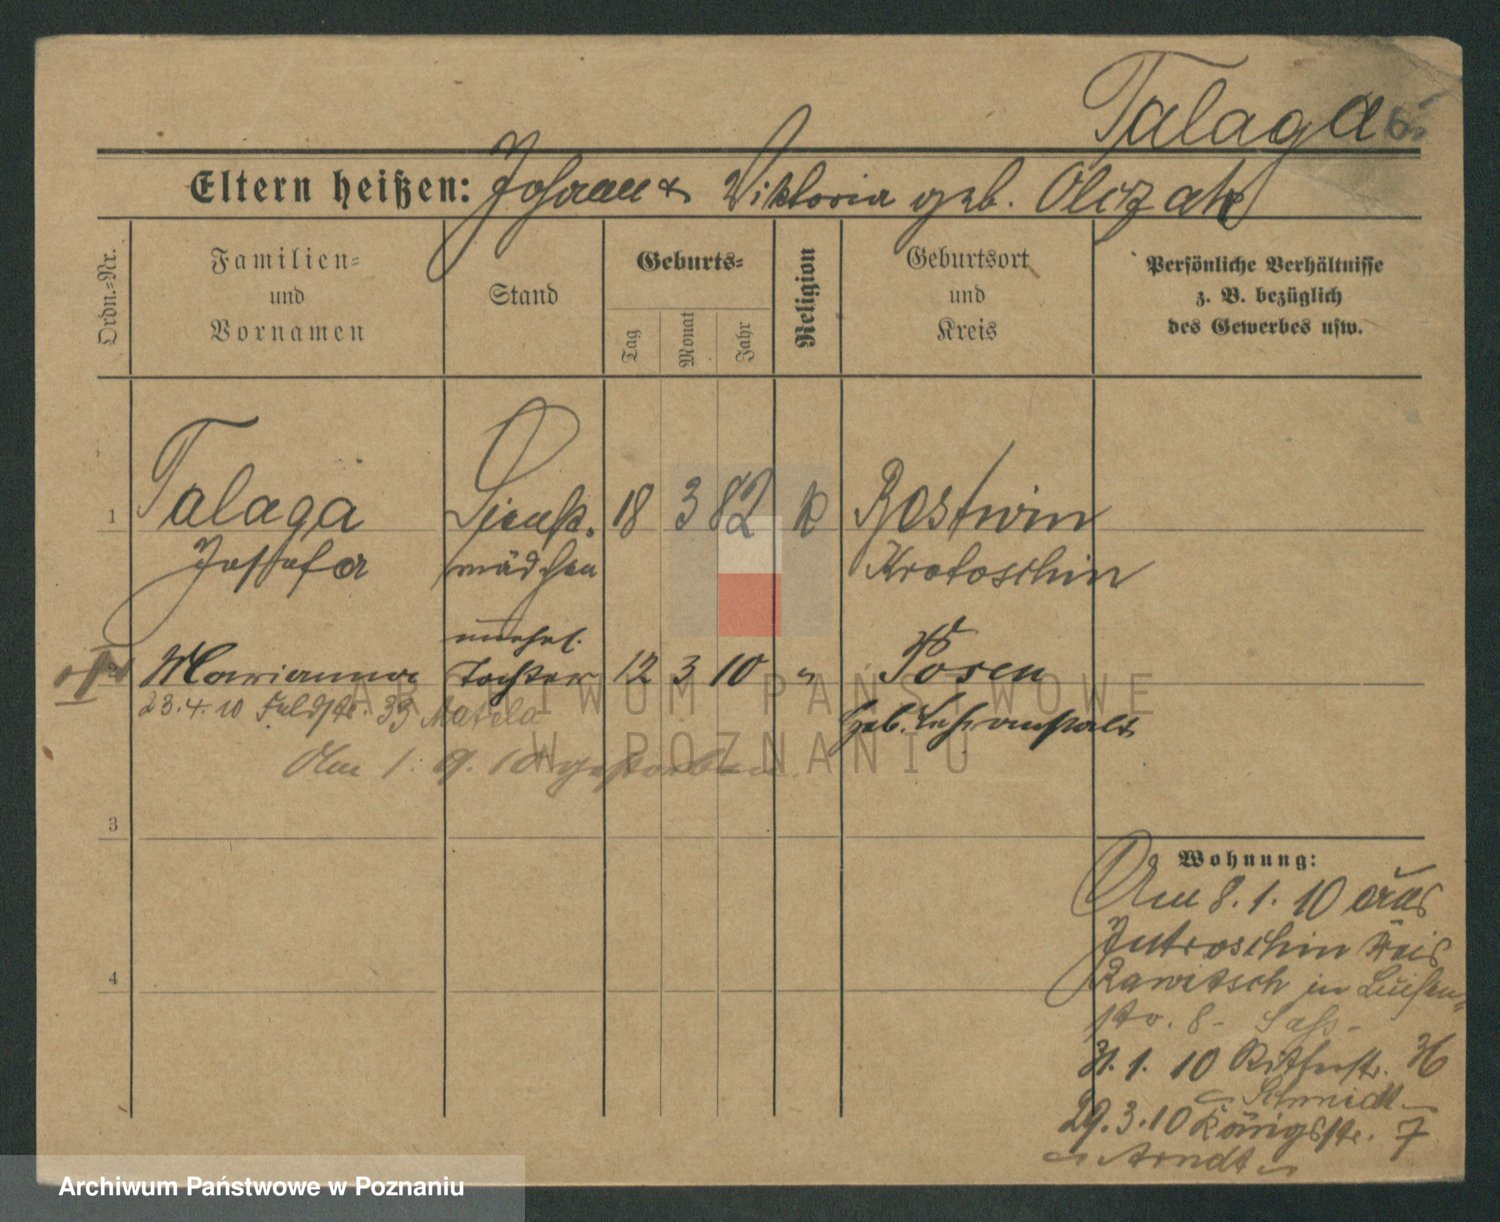 Talaga
Eltern heißen: Johann & Wiktoria geb. Olczak
Ordn.-Nr.
Familien-
und
Vornamen
Stand
Geburts-
Tag
Monat
Jahr
Religion
Geburtsort
und
Kreis
Persönliche Verhältnisse
z. B. bezüglich
des Gewerbes usw.
1 Talaga Dienst- 18 3 82 k Rostwin
Josefa mädchen Krotoschin
unehel.
Marianna Tochter 12 3 10 " Posen
23.4.10 Feldstr. 33 Matela
geb. Lehranstalt
Am 1. 9. 10 gestorben
ARCHIWUM PAŃSTWOWE
W POZNANIU
3
Wohnung:
Am 8. 1. 10 aus
Jutroschin Kreis
4
Rawitsch in Luisen-
str. 8 - Sass -
31. 1. 10 Ritterstr. 36
Schmidt
29. 3. 10 Königstr. 7
Arndt
Archiwum Państwowe w Poznaniu